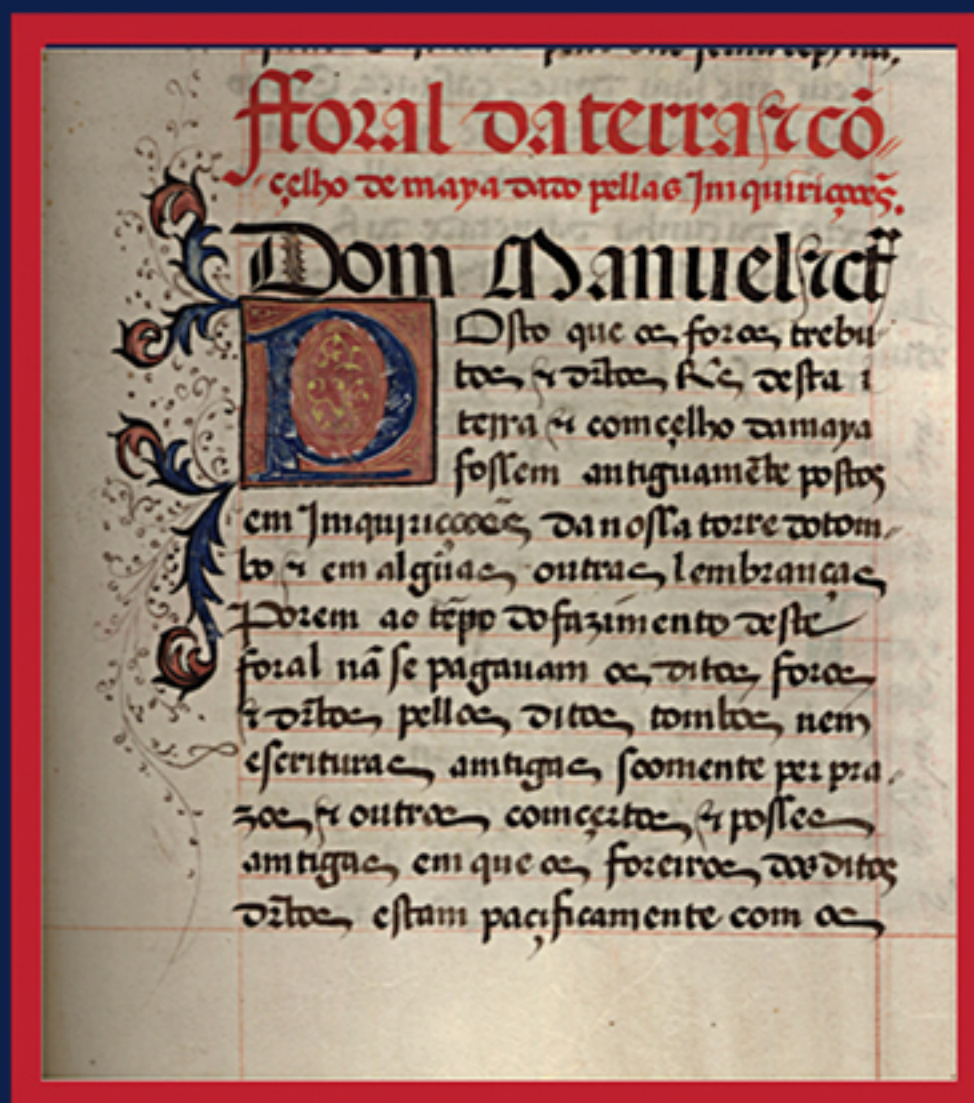 fforal da terra ⁊ cõ
çelho de maya dado pellas Jmquiriçooẽs.
Dom Manuel ⁊cẽ
POsto que os foros trebu
tos ⁊ dr̃tos Rs desta
terra ⁊ comçelho damaya
fossem antiguamẽte postos
em Jmquiriçooẽs da nossa torre do tom
bo ⁊ em algũas outras lembranças
Porem ao tẽpo do fazimento deste
foral nã se pagauam os ditos foros
⁊ dr̃tos pellos ditos tombos nem
escrituras amtigas soomente per pra
zos ⁊ outros comçertos ⁊ posses
amtigas em que os foreiros dos ditos
dr̃tos estam paçificamente com os